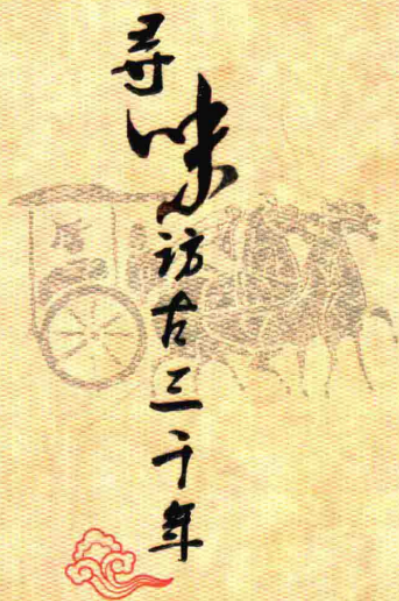 寻味访古三千年